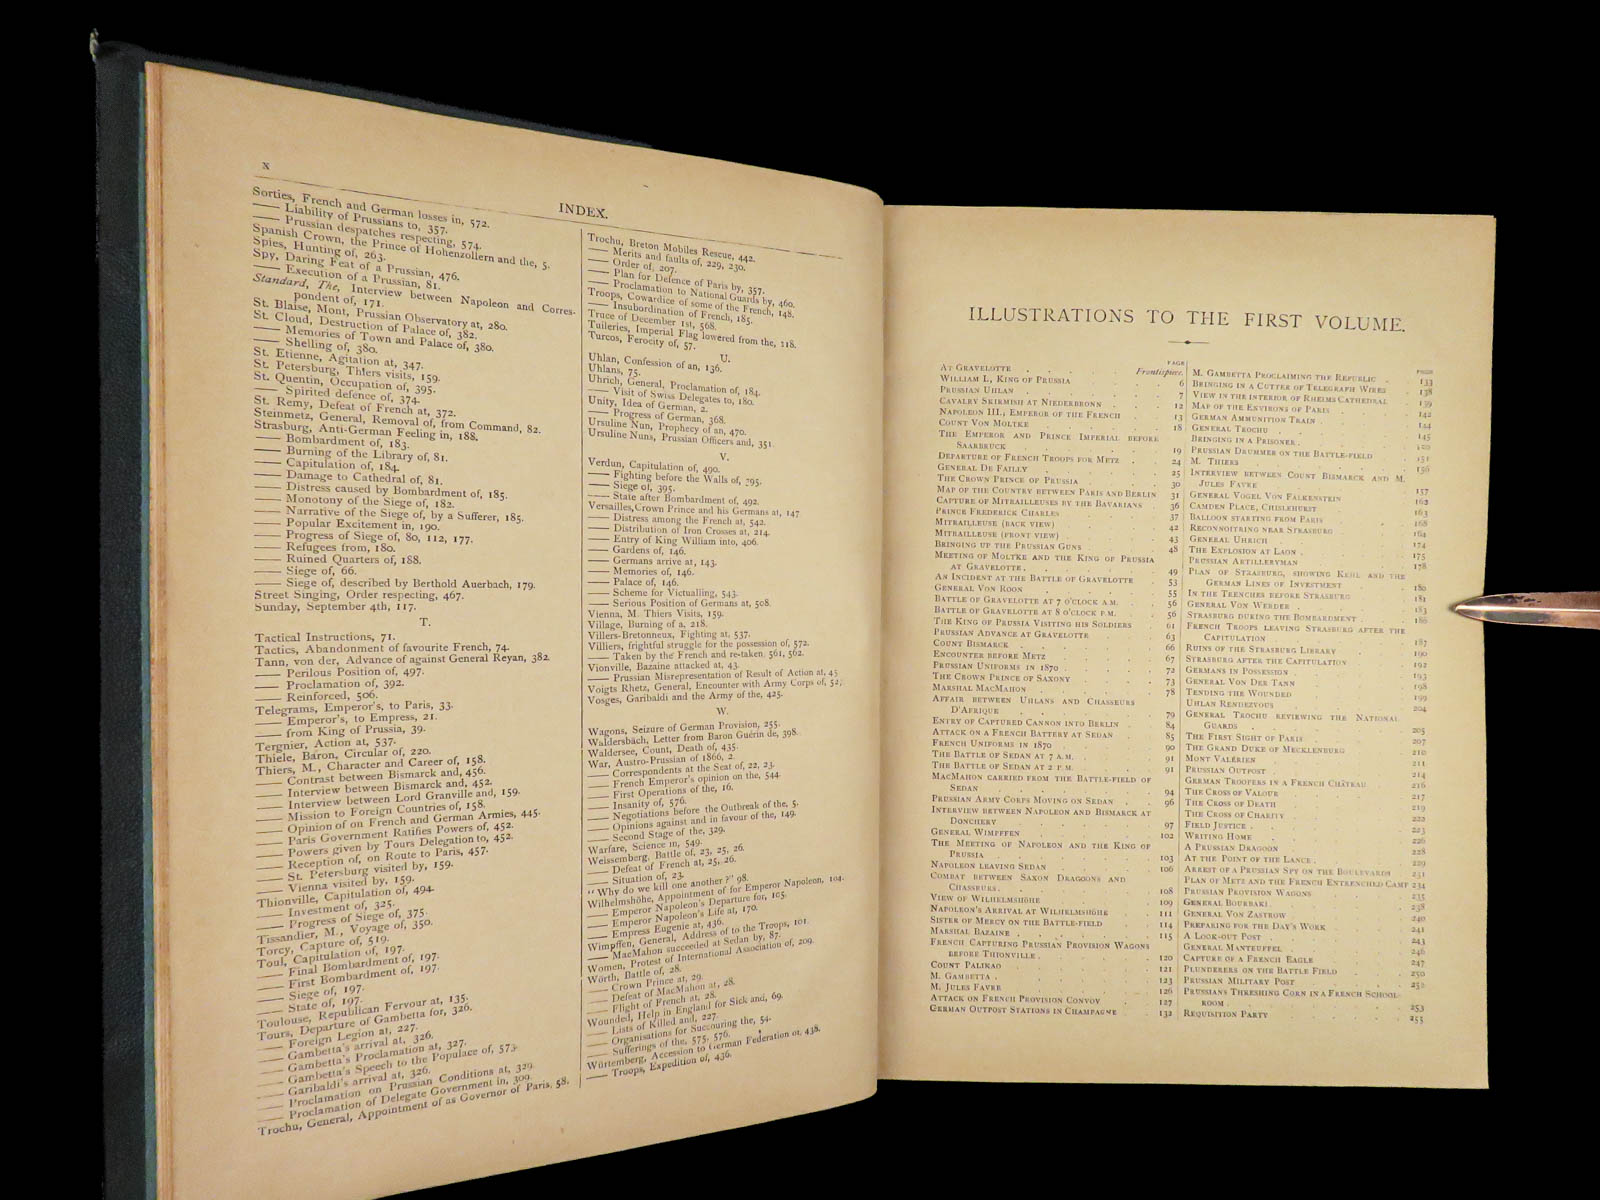 x
INDEX.
Sorties, French and German losses in, 572.
—— Liability of Prussians to, 357.
—— Prussian despatches respecting, 574.
Spanish Crown, the Prince of Hohenzollern and the, 5.
Spies, Hunting of, 263.
Spy, Daring Feat of a Prussian, 476.
—— Execution of a Prussian, 81.
Standard, The, Interview between Napoleon and Corres-
pondent of, 171.
St. Blaise, Mont, Prussian Observatory at, 280.
St. Cloud, Destruction of Palace of, 382.
—— Memories of Town and Palace of, 380.
—— Shelling of, 380.
St. Etienne, Agitation at, 347.
St. Petersburg, Thiers visits, 159.
St. Quentin, Occupation of, 395.
—— Spirited defence of, 374.
St. Remy, Defeat of French at, 372.
Steinmetz, General, Removal of, from Command, 82.
Strasburg, Anti-German Feeling in, 188.
—— Bombardment of, 183.
—— Burning of the Library of, 81.
—— Capitulation of, 184.
—— Damage to Cathedral of, 81.
—— Distress caused by Bombardment of, 185.
—— Monotony of the Siege of, 182.
—— Narrative of the Siege of, by a Sufferer, 185.
—— Popular Excitement in, 190.
—— Progress of Siege of, 80, 112, 177.
—— Refugees from, 180.
—— Ruined Quarters of, 188.
—— Siege of, 66.
—— Siege of, described by Berthold Auerbach, 179.
Street Singing, Order respecting, 467.
Sunday, September 4th, 117.
T.
Tactical Instructions, 71.
Tactics, Abandonment of favourite French, 74.
Tann, von der, Advance of against General Reyan, 382.
—— Perilous Position of, 497.
—— Proclamation of, 392.
—— Reinforced, 506.
Telegrams, Emperor's, to Paris, 33.
—— Emperor's, to Empress, 21.
—— from King of Prussia, 39.
Tergnier, Action at, 537.
Thiele, Baron, Circular of, 220.
Thiers, M., Character and Career of, 158.
—— Contrast between Bismarck and, 456.
—— Interview between Bismarck and, 452.
—— Interview between Lord Granville and, 159.
—— Mission to Foreign Countries of, 158.
—— Opinion of on French and German Armies, 445.
—— Paris Government Ratifies Powers of, 452.
—— Powers given by Tours Delegation to, 452.
—— Reception of, on Route to Paris, 457.
—— St. Petersburg visited by, 159.
—— Vienna visited by, 159.
Thionville, Capitulation of, 494.
—— Investment of, 325.
—— Progress of Siege of, 375.
Tissandier, M., Voyage of, 350.
Torcy, Capture of, 519.
Toul, Capitulation of, 197.
—— Final Bombardment of, 197.
—— First Bombardment of, 197.
—— Siege of, 197.
—— State of, 197.
Toulouse, Republican Fervour at, 135.
Tours, Departure of Gambetta for, 326.
—— Foreign Legion at, 227.
—— Gambetta's arrival at, 326.
—— Gambetta's Proclamation at, 327.
—— Gambetta's Speech to the Populace of, 573.
—— Garibaldi's arrival at, 326.
—— Proclamation on Prussian Conditions at, 329.
—— Proclamation of Delegate Government in, 309.
Trochu, General, Appointment of as Governor of Paris, 58.
Trochu, Breton Mobiles Rescue, 442.
—— Merits and faults of, 229, 230.
—— Order of, 207.
—— Plan for Defence of Paris by, 357.
—— Proclamation to National Guards by, 460.
Troops, Cowardice of some of the French, 148.
—— Insubordination of French, 185.
Truce of December 1st, 568.
Tuileries, Imperial Flag lowered from the, 118.
Turcos, Ferocity of, 57.
U.
Uhlan, Confession of an, 136.
Uhlans, 75.
Uhrich, General, Proclamation of, 184.
—— Visit of Swiss Delegates to, 180.
Unity, Idea of German, 2.
—— Progress of German, 368.
Ursuline Nun, Prophecy of an, 470.
Ursuline Nuns, Prussian Officers and, 351.
V.
Verdun, Capitulation of, 490.
—— Fighting before the Walls of, 395.
—— Siege of, 395.
—— State after Bombardment of, 492.
Versailles, Crown Prince and his Germans at, 147
—— Distress among the French at, 542.
—— Distribution of Iron Crosses at, 214.
—— Entry of King William into, 406.
—— Gardens of, 146.
—— Germans arrive at, 143.
—— Memories of, 146.
—— Palace of, 146.
—— Scheme for Victualling, 543.
—— Serious Position of Germans at, 508.
Vienna, M. Thiers Visits, 159.
Village, Burning of a, 218.
Villers-Bretonneux, Fighting at, 537.
Villiers, frightful struggle for the possession of, 572.
—— Taken by the French and re-taken, 561, 562.
Vionville, Bazaine attacked at, 43.
—— Prussian Misrepresentation of Result of Action at, 45
Voigts Rhetz, General, Encounter with Army Corps of, 52,
Vosges, Garibaldi and the Army of the, 425.
W.
Wagons, Seizure of German Provision, 255.
Waldersbach, Letter from Baron Guérin de, 398.
Waldersee, Count, Death of, 435.
War, Austro-Prussian of 1866, 2.
—— Correspondents at the Seat of, 22, 23.
—— French Emperor's opinion on the, 544.
—— First Operations of the, 16.
—— Insanity of, 576.
—— Negotiations before the Outbreak of the, 5.
—— Opinions against and in favour of the, 149.
—— Second Stage of the, 329.
Warfare, Science in, 549.
Weissemberg, Battle of, 23, 25, 26.
—— Defeat of French at, 25, 26.
—— Situation of, 23.
"Why do we kill one another?" 98.
Wilhelmshöhe, Appointment of for Emperor Napoleon, 104.
—— Emperor Napoleon's Departure for, 105.
—— Emperor Napoleon's Life at, 170.
—— Empress Eugenie at, 436.
Wimpffen, General, Address of to the Troops, 101.
—— MacMahon succeeded at Sedan by, 87.
Women, Protest of International Association of, 209.
Wörth, Battle of, 28.
—— Crown Prince at, 29.
—— Defeat of MacMahon at, 28.
—— Flight of French at, 28.
Wounded, Help in England for Sick and, 69.
—— Lists of Killed and, 227.
—— Organisations for Succouring the, 54.
—— Sufferings of the, 575, 576.
Würtemberg, Accession to German Federation of, 438.
—— Troops, Expedition of, 436.
ILLUSTRATIONS TO THE FIRST VOLUME.
PAGE
AT GRAVELOTTE . . . . . Frontispiece.
WILLIAM I., KING OF PRUSSIA . . . 6
PRUSSIAN UHLAN . . . . 7
CAVALRY SKIRMISH AT NIEDERBRONN . . 12
NAPOLEON III., EMPEROR OF THE FRENCH . 13
COUNT VON MOLTKE . . . . 18
THE EMPEROR AND PRINCE IMPERIAL BEFORE
SAARBRUCK . . . . 19
DEPARTURE OF FRENCH TROOPS FOR METZ . . 24
GENERAL DE FAILLY . . . . 25
THE CROWN PRINCE OF PRUSSIA . . . 30
MAP OF THE COUNTRY BETWEEN PARIS AND BERLIN 31
CAPTURE OF MITRAILLEUSES BY THE BAVARIANS . 36
PRINCE FREDERICK CHARLES . . . 37
MITRAILLEUSE (BACK VIEW) . . . 42
MITRAILLEUSE (FRONT VIEW) . . . 43
BRINGING UP THE PRUSSIAN GUNS . . . 48
MEETING OF MOLTKE AND THE KING OF PRUSSIA
AT GRAVELOTTE . . . . 49
AN INCIDENT AT THE BATTLE OF GRAVELOTTE . 53
GENERAL VON ROON . . . . 55
BATTLE OF GRAVELOTTE AT 7 O'CLOCK A.M. . . 56
BATTLE OF GRAVELOTTE AT 8 O'CLOCK P.M. . . 56
THE KING OF PRUSSIA VISITING HIS SOLDIERS . 61
PRUSSIAN ADVANCE AT GRAVELOTTE . . 63
COUNT BISMARCK . . . . 66
ENCOUNTER BEFORE METZ . . . 67
PRUSSIAN UNIFORMS IN 1870 . . . 72
THE CROWN PRINCE OF SAXONY . . . 73
MARSHAL MACMAHON . . . . 78
AFFAIR BETWEEN UHLANS AND CHASSEURS
D'AFRIQUE . . . . 79
ENTRY OF CAPTURED CANNON INTO BERLIN . . 84
ATTACK ON A FRENCH BATTERY AT SEDAN . . 85
FRENCH UNIFORMS IN 1870 . . . 90
THE BATTLE OF SEDAN AT 7 A.M. . . . 91
THE BATTLE OF SEDAN AT 2 P.M. . . . 91
MACMAHON CARRIED FROM THE BATTLE-FIELD OF
SEDAN . . . . 94
PRUSSIAN ARMY CORPS MOVING ON SEDAN . . 96
INTERVIEW BETWEEN NAPOLEON AND BISMARCK AT
DONCHERY . . . . 97
GENERAL WIMPFFEN . . . . 102
THE MEETING OF NAPOLEON AND THE KING OF
PRUSSIA . . . . 103
NAPOLEON LEAVING SEDAN . . . 106
COMBAT BETWEEN SAXON DRAGOONS AND
CHASSEURS . . . . 108
VIEW OF WILHELMSHÖHE . . . 109
NAPOLEON'S ARRIVAL AT WILHELMSHÖHE . . 111
SISTER OF MERCY ON THE BATTLE-FIELD . . 114
MARSHAL BAZAINE . . . . 115
FRENCH CAPTURING PRUSSIAN PROVISION WAGONS
BEFORE THIONVILLE . . . . 120
COUNT PALIKAO . . . . 121
M. GAMBETTA . . . . 123
M. JULES FAVRE . . . . 126
ATTACK ON FRENCH PROVISION CONVOY . . 127
GERMAN OUTPOST STATIONS IN CHAMPAGNE . . 132
PAGE
M. GAMBETTA PROCLAIMING THE REPUBLIC . 133
BRINGING IN A CUTTER OF TELEGRAPH WIRES . 138
VIEW IN THE INTERIOR OF RHEIMS CATHEDRAL . 139
MAP OF THE ENVIRONS OF PARIS . . . 142
GERMAN AMMUNITION TRAIN . . . 144
GENERAL TROCHU . . . . 145
BRINGING IN A PRISONER . . . .
PRUSSIAN DRUMMER ON THE BATTLE-FIELD . . 151
M. THIERS . . . . 156
INTERVIEW BETWEEN COUNT BISMARCK AND M.
JULES FAVRE . . . . 157
GENERAL VOGEL VON FALKENSTEIN . . 162
CAMDEN PLACE, CHISLEHURST . . . 163
BALLOON STARTING FROM PARIS . . . 168
RECONNOITRING NEAR STRASBURG . .
GENERAL UHRICH . . . . 174
THE EXPLOSION AT LAON . . . . 175
PRUSSIAN ARTILLERYMAN . . . 178
PLAN OF STRASBURG, SHOWING KEHL AND THE
GERMAN LINES OF INVESTMENT . . 180
IN THE TRENCHES BEFORE STRASBURG . . 181
GENERAL VON WERDER . . . . 183
STRASBURG DURING THE BOMBARDMENT . . 186
FRENCH TROOPS LEAVING STRASBURG AFTER THE
CAPITULATION . . . . 187
RUINS OF THE STRASBURG LIBRARY . . 190
STRASBURG AFTER THE CAPITULATION . . 192
GERMANS IN POSSESSION . . . . 193
GENERAL VON DER TANN . . . 198
TENDING THE WOUNDED . . . 199
UHLAN RENDEZVOUS . . . . 204
GENERAL TROCHU REVIEWING THE NATIONAL
GUARDS . . . . 205
THE FIRST SIGHT OF PARIS . . . 207
THE GRAND DUKE OF MECKLENBURG . . 210
MONT VALÉRIEN . . . . 211
PRUSSIAN OUTPOST . . . . 214
GERMAN TROOPERS IN A FRENCH CHÂTEAU . 216
THE CROSS OF VALOUR . . . . 217
THE CROSS OF DEATH . . . . 219
THE CROSS OF CHARITY . . . . 222
FIELD JUSTICE . . . . 223
WRITING HOME . . . . 226
A PRUSSIAN DRAGOON . . . . 228
AT THE POINT OF THE LANCE . . . 229
ARREST OF A PRUSSIAN SPY ON THE BOULEVARDS 231
PLAN OF METZ AND THE FRENCH ENTRENCHED CAMP 234
PRUSSIAN PROVISION WAGONS . . . 235
GENERAL BOURBAKI . . . . 238
GENERAL VON ZASTROW . . . . 240
PREPARING FOR THE DAY'S WORK . . 241
A LOOK-OUT POST . . . . 243
GENERAL MANTEUFFEL . . . . 246
CAPTURE OF A FRENCH EAGLE . . . 247
PLUNDERERS ON THE BATTLE FIELD . . 250
PRUSSIAN MILITARY POST . . . 252
PRUSSIANS THRESHING CORN IN A FRENCH SCHOOL-
ROOM . . . . 253
REQUISITION PARTY . . . . 255